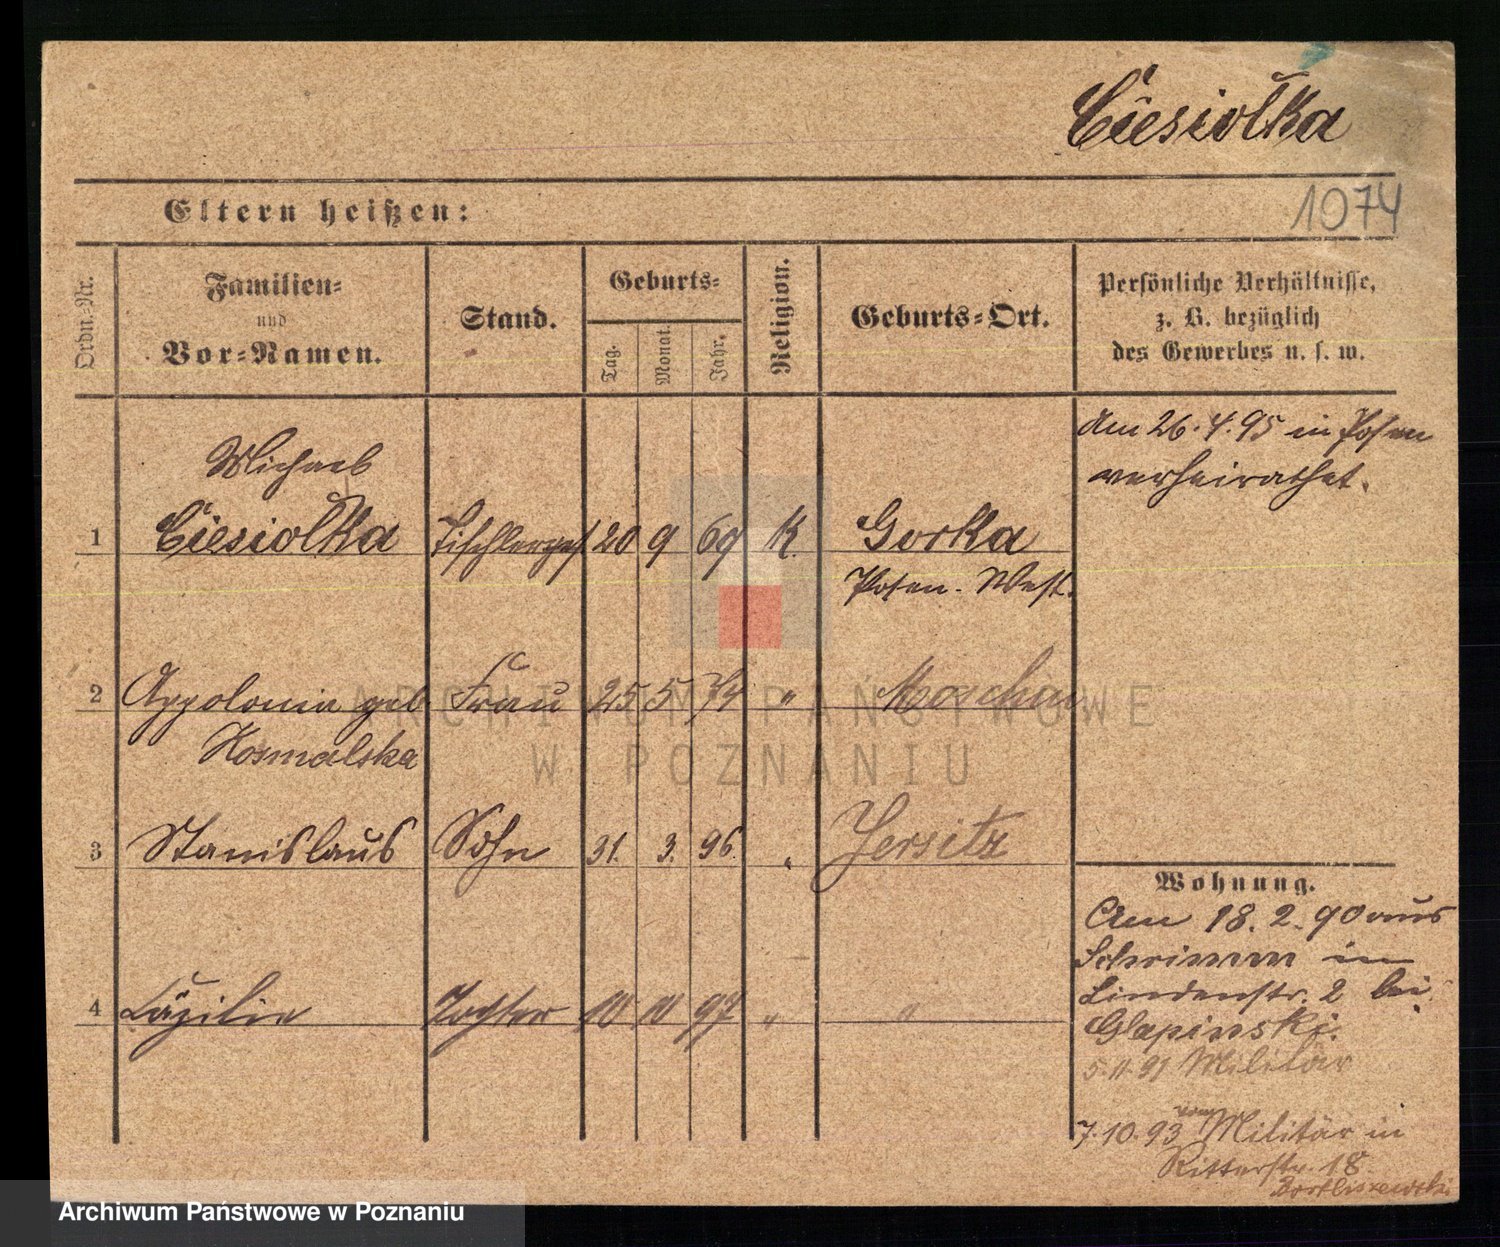 Ciesiołka
1074
Eltern heißen:
Ordn.-Nr.
Familien-
und
Vor-Namen.
Stand.
Geburts-
Tag.
Monat.
Jahr.
Religion.
Geburts-Ort.
Persönliche Verhältnisse,
z. B. bezüglich
des Gewerbes u. s. w.
Am 26.4.95 in Posen
verheirathet.
Michael
1 Ciesiołka Tischlerges. 20 9 69 K. Gorka
Posen-West.
2 Appolonia geb Frau 25 5 74 " Moschin
Kosmalska
3 Stanislaus Sohn 31. 3. 96. " Jersitz
4 Cäzilie Tochter 10 11 97 " "
Wohnung.
Am 18.2.90 aus
Schrimm in
Lindenstr. 2 bei
Glapinski.
5.11.91 Militär
7.10.93 vom Militär in
Ritterstr. 18
Bartliszewski
ARCHIWUM PAŃSTWOWE
W POZNANIU
Archiwum Państwowe w Poznaniu